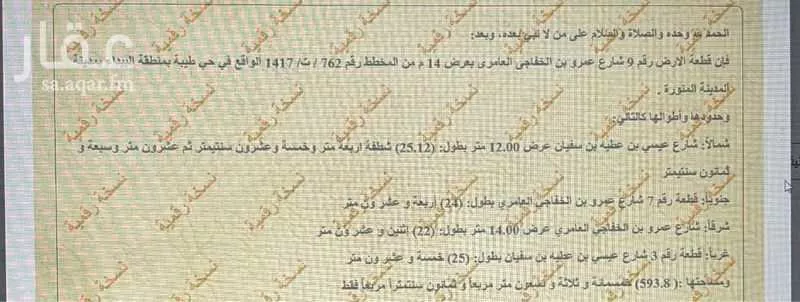 الحمد لله وحده والصلاة والسلام على من لا نبي بعده، وبعد:
فإن قطعة الارض رقم 9 شارع عمرو بن الخفاجى العامرى بعرض 14 م من المخطط رقم 762 / ت/ 1417 الواقع في حي طيبة بمنطقة البيداء بمدينة
المدينة المنورة .
وحدودها وأطوالها كالتالي:
شمالاً: شارع عيسي بن عطيه بن سفيان عرض 12.00 متر بطول: (25.12) شطفة اربعة متر وخمسة وعشرون سنتيمتر ثم عشرون متر وسبعة و
ثمانون سنتيمتر
جنوباً: قطعة رقم 7 شارع عمرو بن الخفاجى العامري بطول: (24) أربعة و عشر ون متر
شرقاً: شارع عمرو بن الخفاجي العامري عرض 14.00 متر بطول: (22) إثنين و عشر ون متر
غرباً: قطعة رقم 3 شارع عيسي بن عطيه بن سفيان بطول: (25) خمسة و عشر ون متر
ومساحتها :( 593.8) خمسمائة و ثلاثة و تسعون متر مربعاً و ثمانون سنتمتراً مربعاً فقط
نسخة رقمية
عقار
sa.aqar.fm